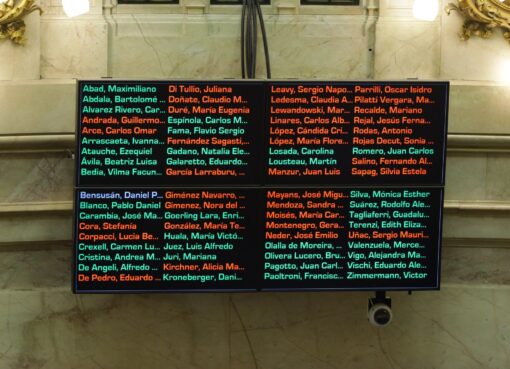 Abad, Maximiliano Di Tullio, Juliana Leavy, Sergio Napo... Parrilli, Oscar Isidro
Abdala, Bartolomé ... Doñate, Claudio M... Ledesma, Claudia A... Pilatti Vergara, Ma...
Alvarez Rivero, Car... Duré, María Eugenia Lewandowski, Mar... Recalde, Mariano
Andrada, Guillermo... Espínola, Carlos M... Linares, Carlos Alb... Rejal, Jesús Ferna...
Arce, Carlos Omar Fama, Flavio Sergio López, Cándida Cri... Rodas, Antonio
Arrascaeta, Ivanna... Fernández Sagasti,... López, María Flore... Rojas Decut, Sonia ...
Atauche, Ezequiel Gadano, Natalia Ele... Losada, Carolina Romero, Juan Carlos
Ávila, Beatriz Luisa Galaretto, Eduardo... Lousteau, Martín Salino, Fernando Al...
Bedia, Vilma Facun... García Larraburu, ... Manzur, Juan Luis Sapag, Silvia Estela
Bensusán, Daniel P... Giménez Navarro, ... Mayans, José Migu... Silva, Mónica Esther
Blanco, Pablo Daniel Gimenez, Nora del ... Mendoza, Sandra ... Suárez, Rodolfo Ale...
Carambia, José Ma... Goerling Lara, Enri... Moisés, María Car... Tagliaferri, Guadalu...
Cora, Stefanía González, María Te... Montenegro, Gera... Terenzi, Edith Eliza...
Corpacci, Lucía Be... Huala, María Victó... Neder, José Emilio Uñac, Sergio Mauri...
Crexell, Carmen Lu... Juez, Luis Alfredo Olalla de Moreira, ... Valenzuela, Merce...
Cristina, Andrea M... Juri, Mariana Olivera Lucero, Bru... Vigo, Alejandra Ma...
De Angeli, Alfredo ... Kirchner, Alicia Ma... Pagotto, Juan Carl... Vischi, Eduardo Ale...
De Pedro, Eduardo ... Kroneberger, Dani... Paoltroni, Francisc... Zimmermann, Víctor